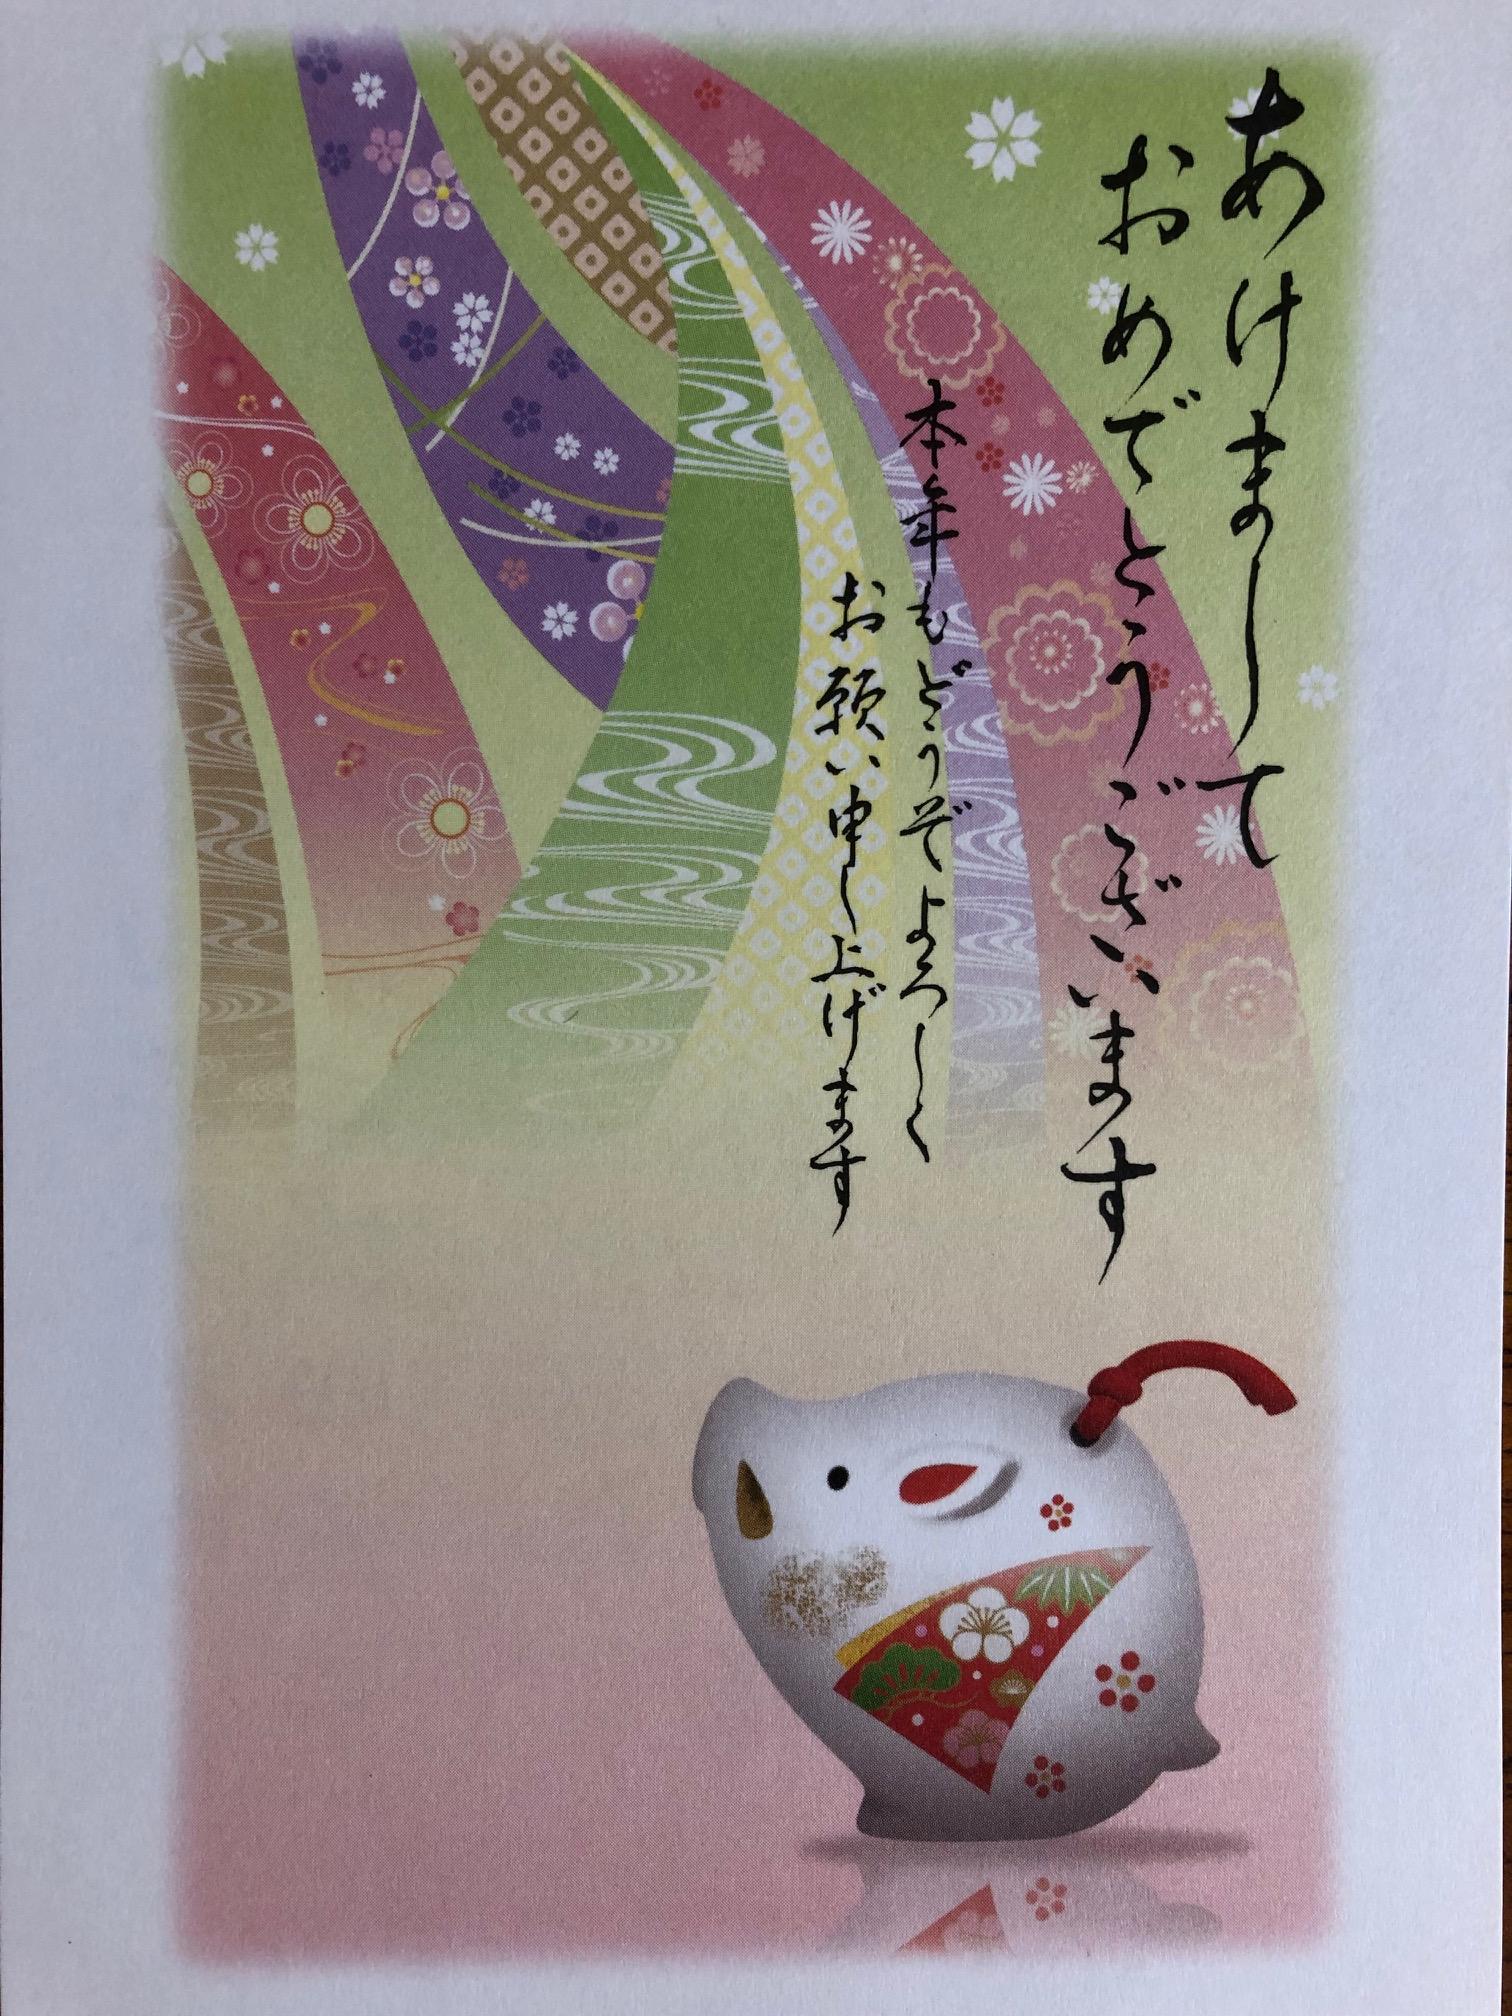 あけまして
おめでとうございます
本年もどうぞよろしく
お願い申し上げます